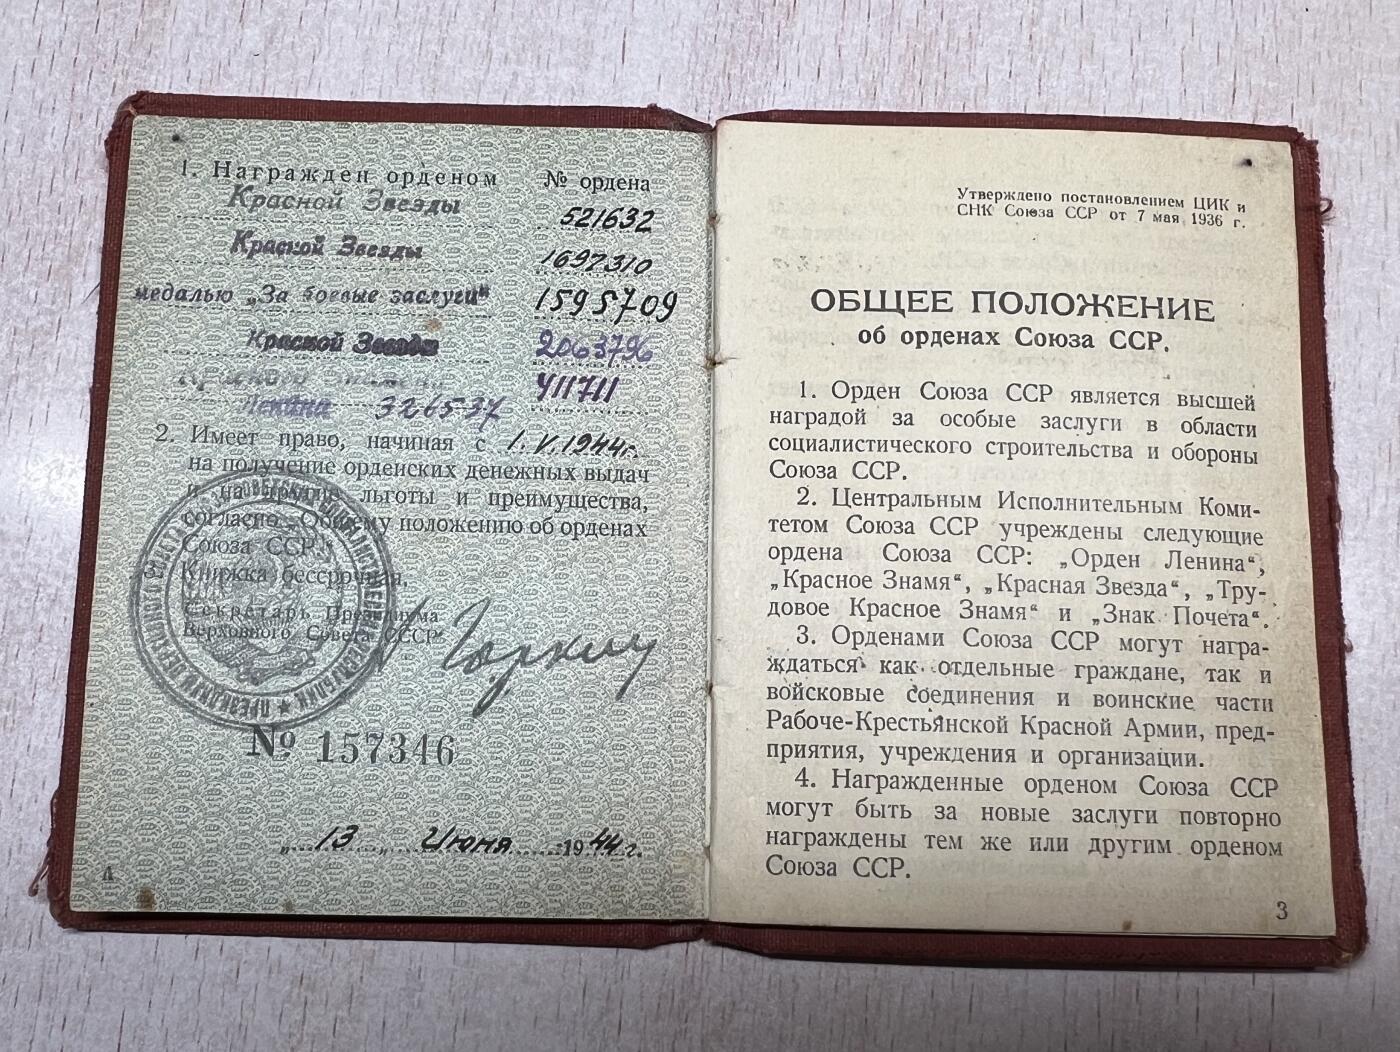 1. Награжден орденом № ордена
Красной Звезды 521632
Красной Звезды 1697310
медалью „За боевые заслуги“ 1595709
Красной Звезды 2063796
Красного Знамени 411711
Ленина 326537
2. Имеет право, начиная с 1.V.1944г.
на получение орденских денежных выдач
и на другие льготы и преимущества,
согласно „Общему положению об орденах
Союза ССР“.
Книжка бессрочная.
Секретарь Президиума
Верховного Совета СССР
Горкин
№ 157346
„13„ Июня 1944 г.
А
Утверждено постановлением ЦИК и
СНК Союза ССР от 7 мая 1936 г.
ОБЩЕЕ ПОЛОЖЕНИЕ
об орденах Союза ССР.
1. Орден Союза ССР является высшей
наградой за особые заслуги в области
социалистического строительства и обороны
Союза ССР.
2. Центральным Исполнительным Коми-
тетом Союза ССР учреждены следующие
ордена Союза ССР: „Орден Ленина“,
„Красное Знамя“, „Красная Звезда“, „Тру-
довое Красное Знамя“ и „Знак Почета“.
3. Орденами Союза ССР могут награ-
ждаться как отдельные граждане, так и
войсковые соединения и воинские части
Рабоче-Крестьянской Красной Армии, пред-
приятия, учреждения и организации.
4. Награжденные орденом Союза ССР
могут быть за новые заслуги повторно
награждены тем же или другим орденом
Союза ССР.
3